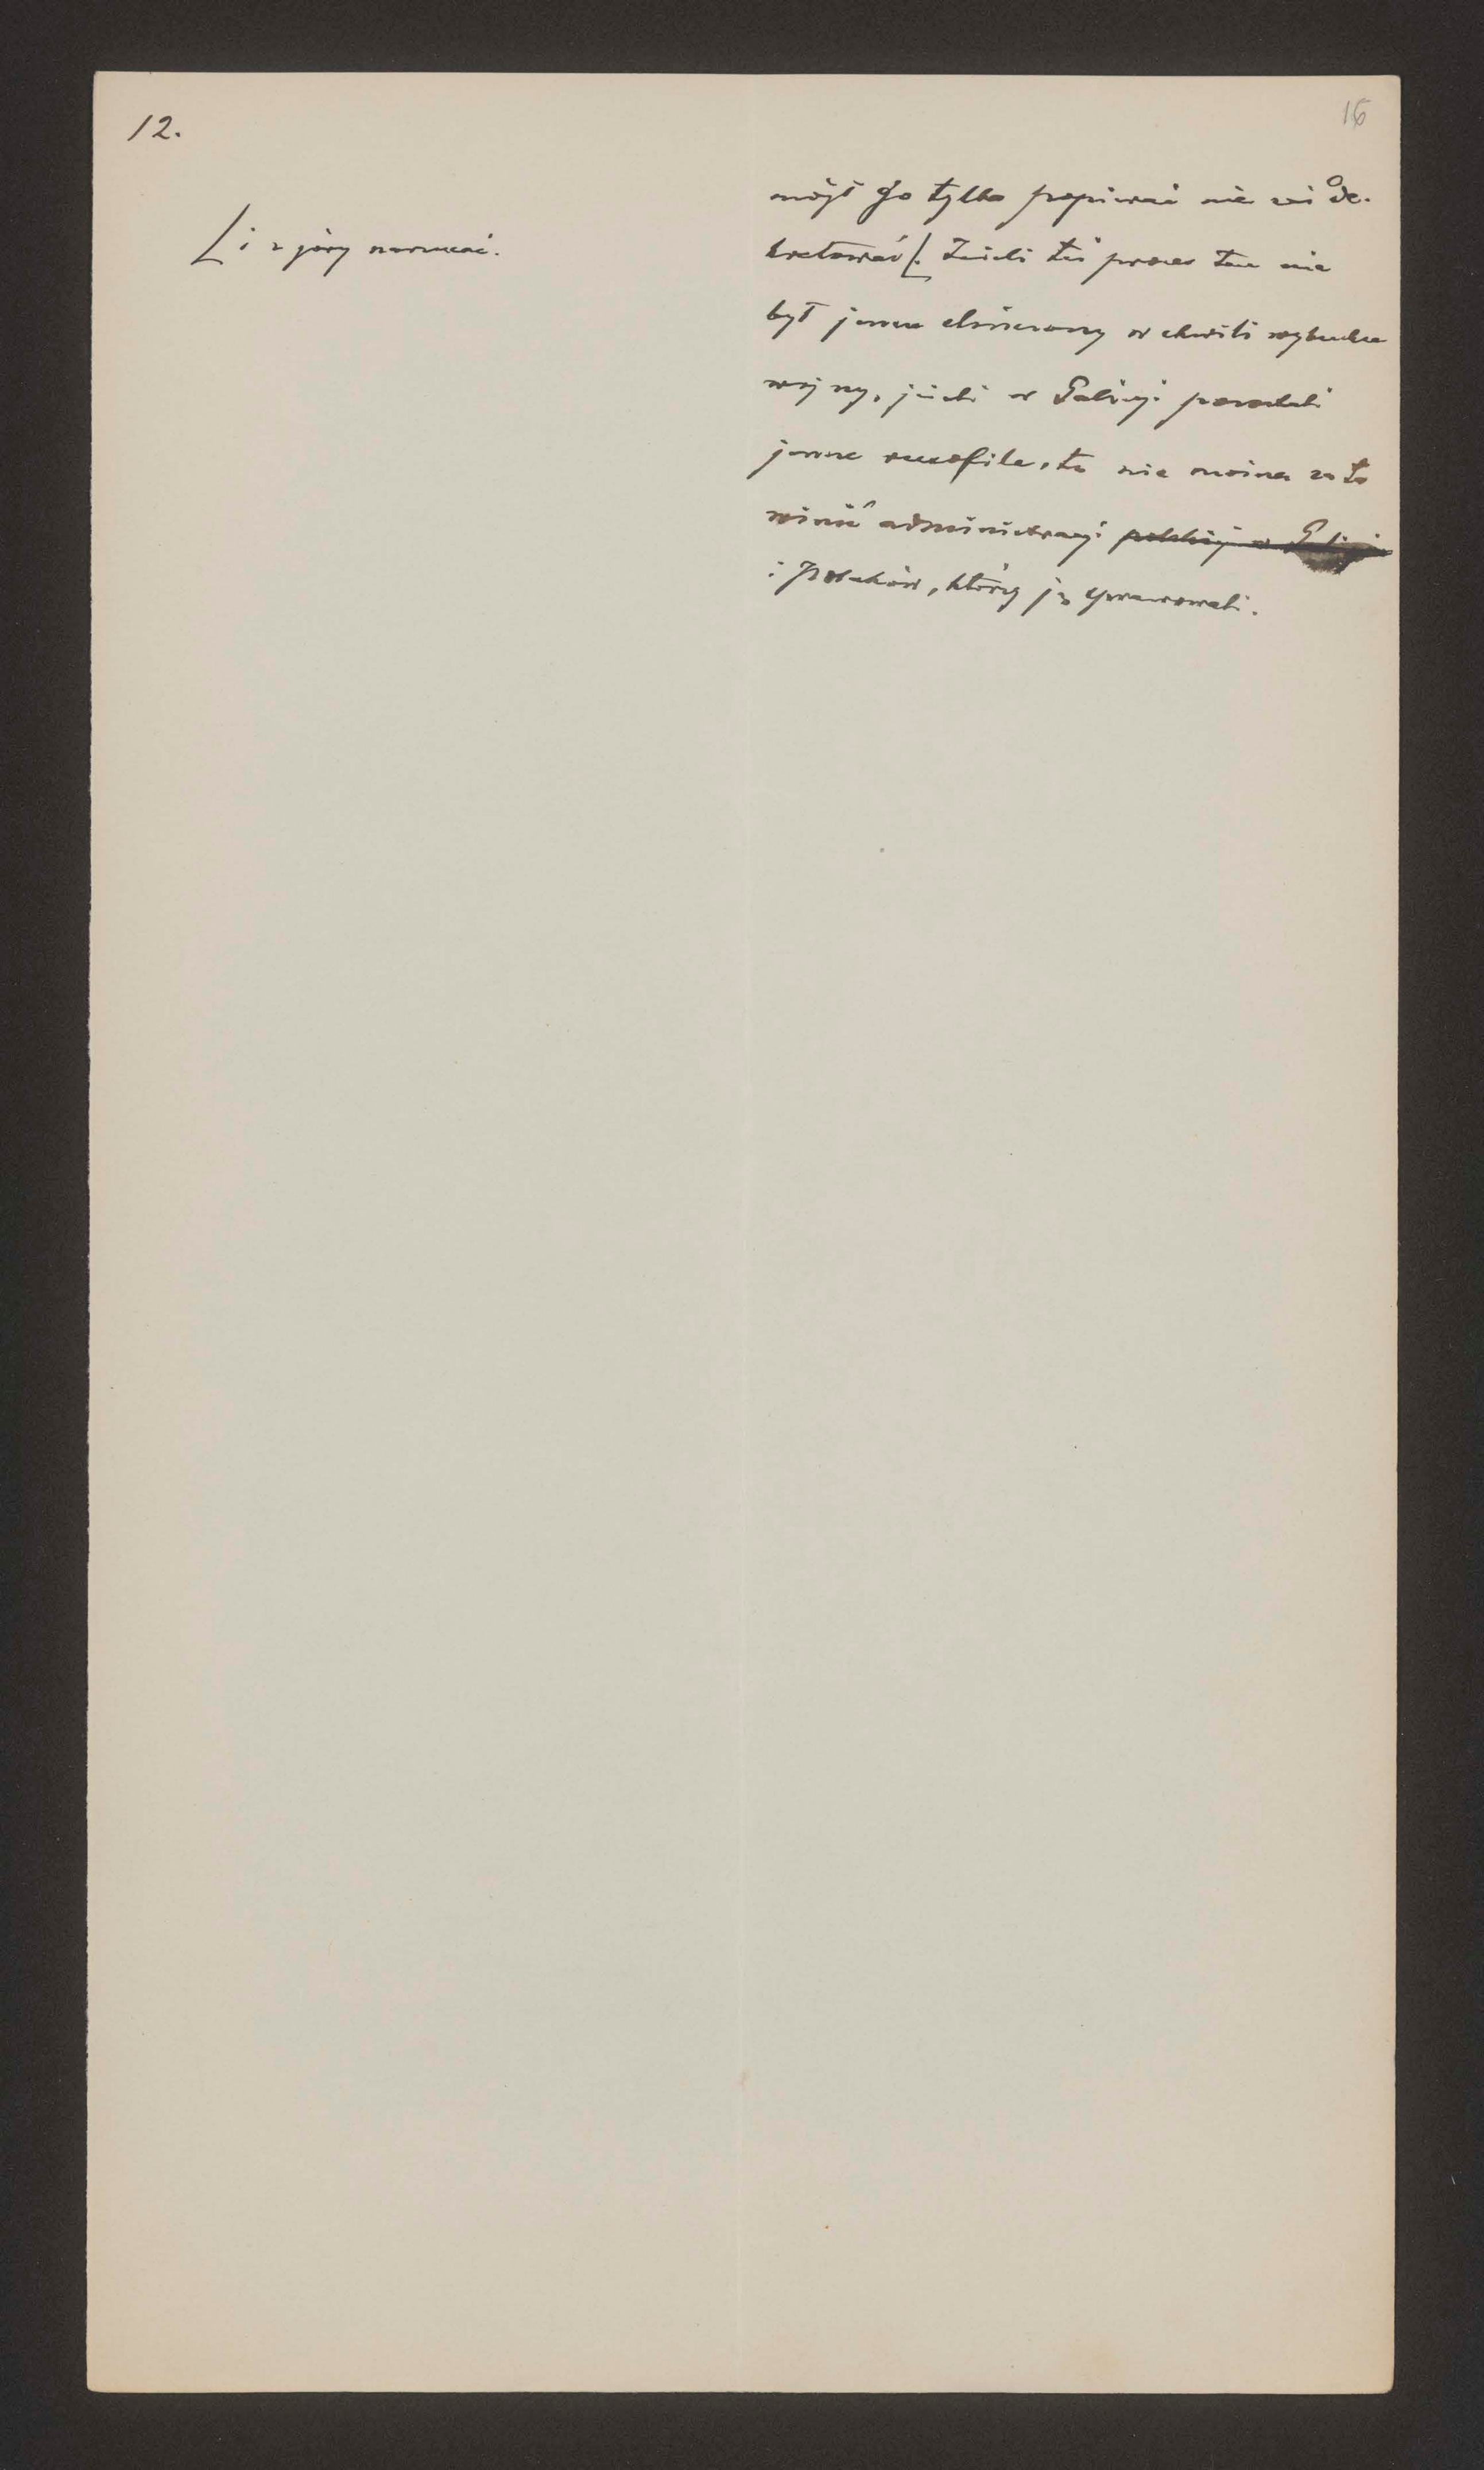 12.
16
⌊ i z góry narzucać.
mógł go tylko popierać nie zaś de-
kretować ⌊. Jeżeli też proces ten nie
był jeszcze skończony w chwili wybuchu
wojny, jeżeli w Galicyi pozostali
jeszcze rusofile, to nie można za to
winić administracyi polskiej w Galicyi
i Polaków, którzy ją sprawowali.